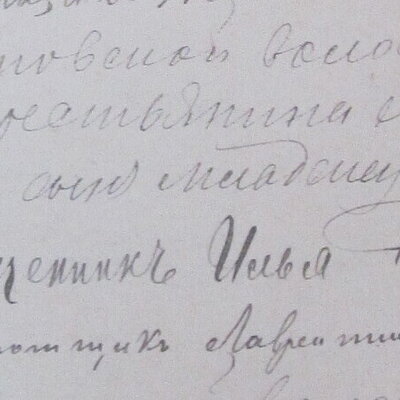 новской воло
рестьянина
сынъ младенец
ценникъ Илья
омщикъ Лаврентий